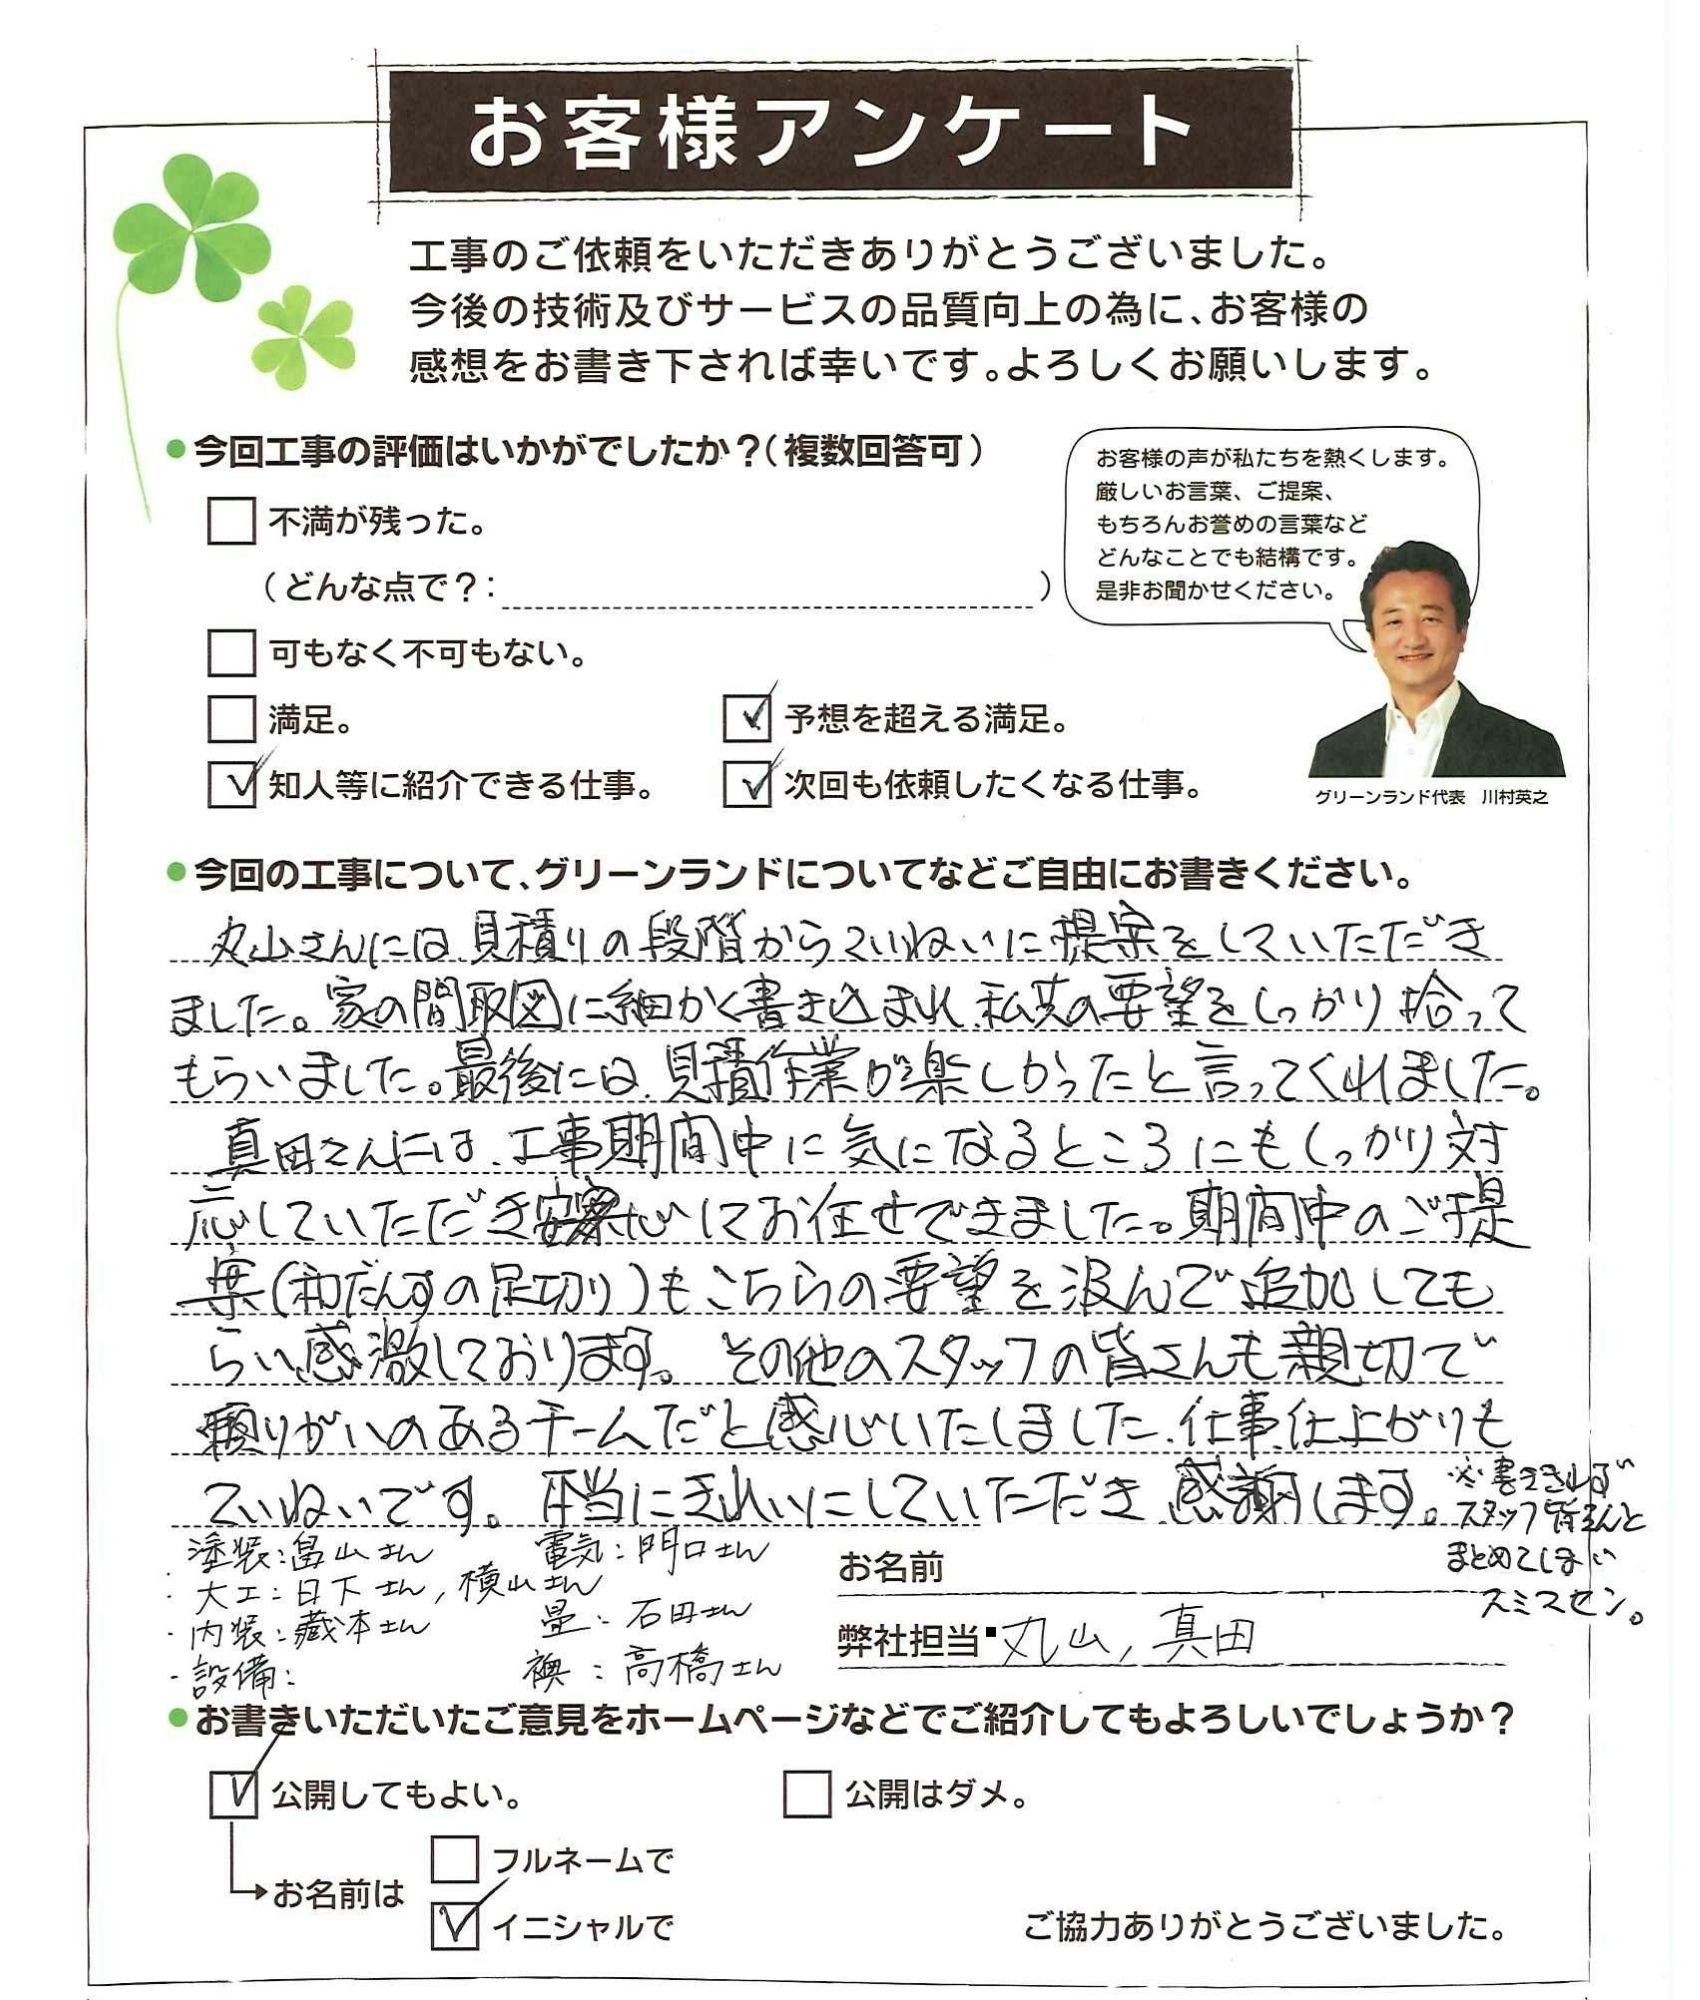 お客様アンケート
工事のご依頼をいただきありがとうございました。
今後の技術及びサービスの品質向上の為に、お客様の
感想をお書き下されば幸いです。よろしくお願いします。
●今回工事の評価はいかがでしたか？（複数回答可）
不満が残った。
（どんな点で？： ）
可もなく不可もない。
満足。
予想を超える満足。
知人等に紹介できる仕事。
次回も依頼したくなる仕事。
お客様の声が私たちを熱くします。
厳しいお言葉、ご提案、
もちろんお誉めの言葉など
どんなことでも結構です。
是非お聞かせください。
グリーンランド代表 川村英之
●今回の工事について、グリーンランドについてなどご自由にお書きください。
丸山さんには、見積りの段階からていねいに提案をしていただき
ました。家の間取図に細かく書き込まれ、私共の要望をしっかり拾って
もらいました。最後には、見積作業が楽しかったと言ってくれました。
真田さんには、工事期間中に気になるところにもしっかり対
応していただき安心してお任せできました。期間中のご提
案(和だんすの足切り)もこちらの要望を汲んで追加しても
らい感激しております。その他のスタッフの皆さんも親切で
頼りがいのあるチームだと感心いたしました、仕事、仕上がりも
ていねいです。本当にきれいにしていただき、感謝します。
※書ききれず
スタッフ皆さんと
まとめてしまい
スミマセン。
塗装:畠山さん 電気:門口さん
・大工:日下さん, 横山さん
・内装:蔵本さん 畳:石田さん
・設備: 襖:高橋さん
お名前
弊社担当 丸山, 真田
●お書きいただいたご意見をホームページなどでご紹介してもよろしいでしょうか？
公開してもよい。
公開はダメ。
お名前は
フルネームで
イニシャルで
ご協力ありがとうございました。